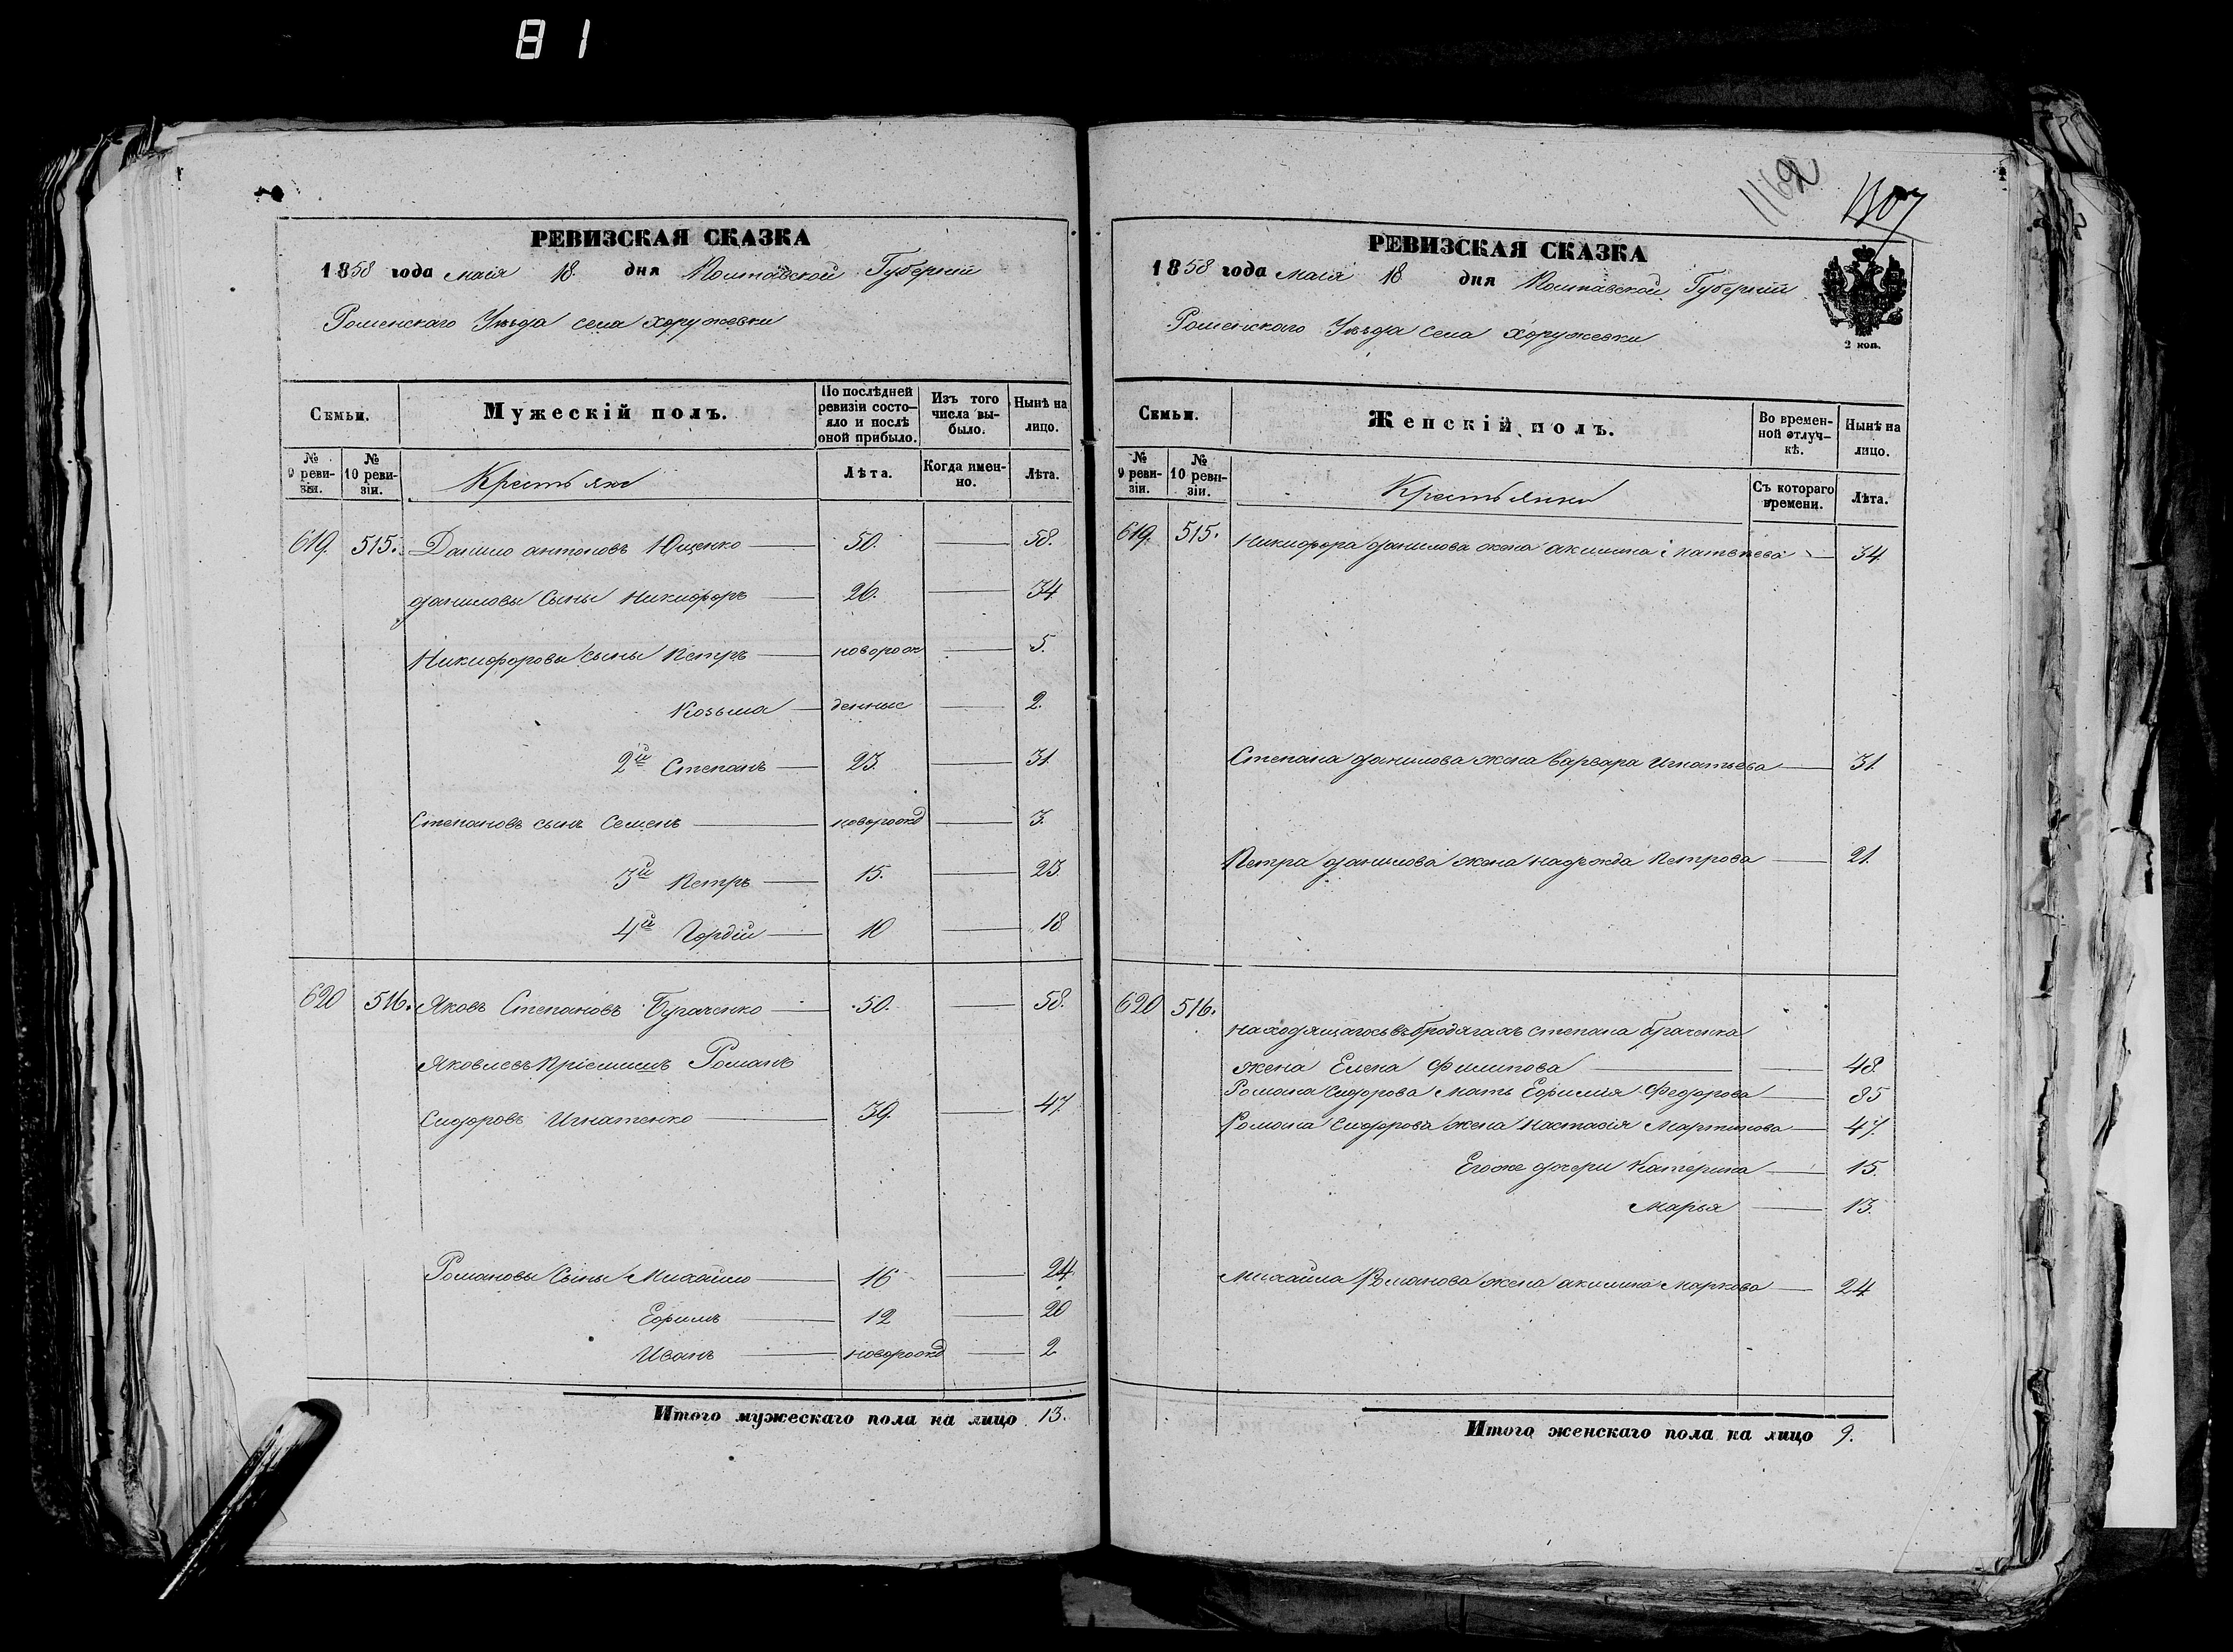 81
РЕВИЗСКАЯ СКАЗКА
1858 года маія 18. дня Полтавской Губерніи
Роменскаго Уѣзда села Хоружевки
Семьи.
Мужескій полъ.
По послѣдней ревизіи состо-
яло и послѣ
оной прибыло.
Изъ того
числа вы-
было.
Нынѣ на
лицо.
№ 9 реви-
зіи.
№ 10 реви-
зіи.
Крестьяне
Лѣта.
Когда имен-
но.
Лѣта.
619. 515. Данило антоновъ Ющенко 50. 58.
даниловы Сыны Никифоръ 26. 34
Никифоровы сыны Петръ новорож 5.
Козьма денные 2.
2й Степанъ 23. 31.
Степановъ сынъ Семенъ новорожд 3.
3й Петръ 15. 23.
4й Гордій 10 18
620 516. Яковъ Степановъ 50. 58.
Яковлевъ Пріемышъ Романъ
Сидоровъ Игнатенко 39. 47.
Романовы Сыны Михайло 16 24.
Ефимъ 12 20
Иванъ новорожд 2
Итого мужескаго пола на лицо 13.
1162
1107
РЕВИЗСКАЯ СКАЗКА
1858 года маія 18 дня Полтавской Губерніи
Роменскаго Уѣзда села Хоружевки
2 коп.
Семьи.
Женскій полъ.
Во времен-
ной отлуч-
кѣ.
Нынѣ на
лицо.
№ 9 реви-
зіи.
№ 10 реви-
зіи.
Крестьянки
Съ котораго
времени.
Лѣта.
619. 515. Никифора данилова жена акилина матвѣева 34
Степана данилова жена Варвара Игнатьева 31.
Петра данилова жена надежда Петрова 21.
620 516.
находящагось въ бродягахъ степана
жена Елена Филипова 48.
Романа Сидорова Мать Ефимія Федорова 85
Романа Сидорова жена Настасія Мартинова 47.
Егоже дочери Катерина 15.
Марья 13.
Михайла Романова жена акилина Маркова 24.
Итого женскаго пола на лицо 9.